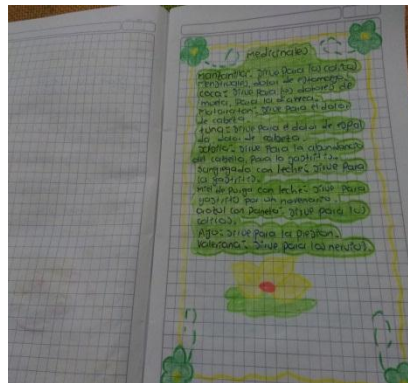 Medicinales
manzanilla: Sirve Para los colicos
menstruales, dolor de estomago.
coca: Sirve Para los dolores de
muela, Para la diarrea.
Sirve Para el dolor
de cabeza.
tuna: Sirve Para el dolor de espal
da dolor de cabeza.
Sirve Para la abundancia
del cabello, Para la gastritis.
con leche: Sirve Para
la gastritis.
miel de Purga con leche: Sirve Para
gastritis por un
con Panela: Sirve para los
colicos.
Ajo: Sirve Para la Presion.
Valeriana: Sirve Para los nervios.